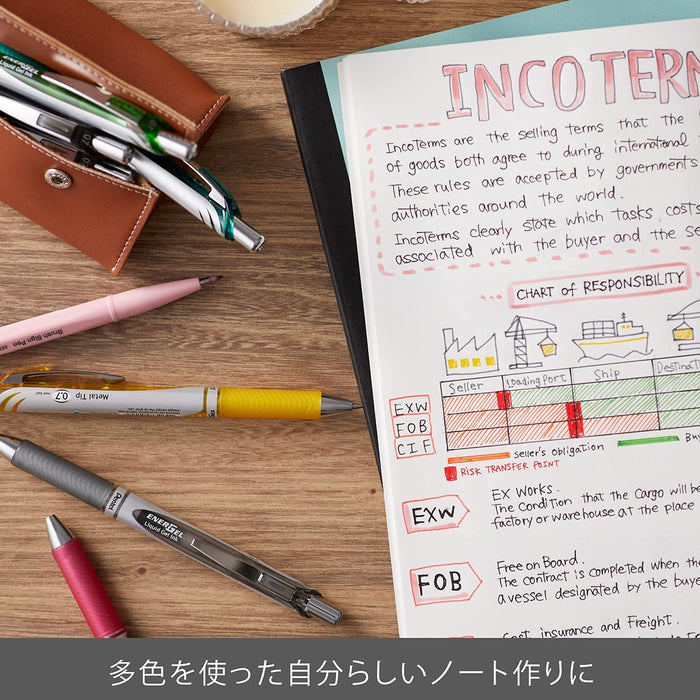 INCOTERM
Incoterms are the selling terms that the
of goods both agree to during international
These rules are accepted by government's
authorities around the world.
Incoterms clearly state which tasks, costs
associated with the buyer and the se
CHART of RESPONSIBILITY
Seller Loading Port Ship Destinati
EXW
FOB
CIF
Seller's obligation Bu
RISK TRANSFER POINT
EXW
EX Works.
The Condition that the Cargo will be
factory or warehouse at the place
FOB
Free on Board.
The contract is completed when the
a vessel designated by the buye
Cost, insurance and Freight.
ENERGEL
Liquid Gel Ink
Brush Sign Pen
Metal Tip 0.7
Pentel
ENERGEL
Liquid Gel Ink
多色を使った自分らしいノート作りに